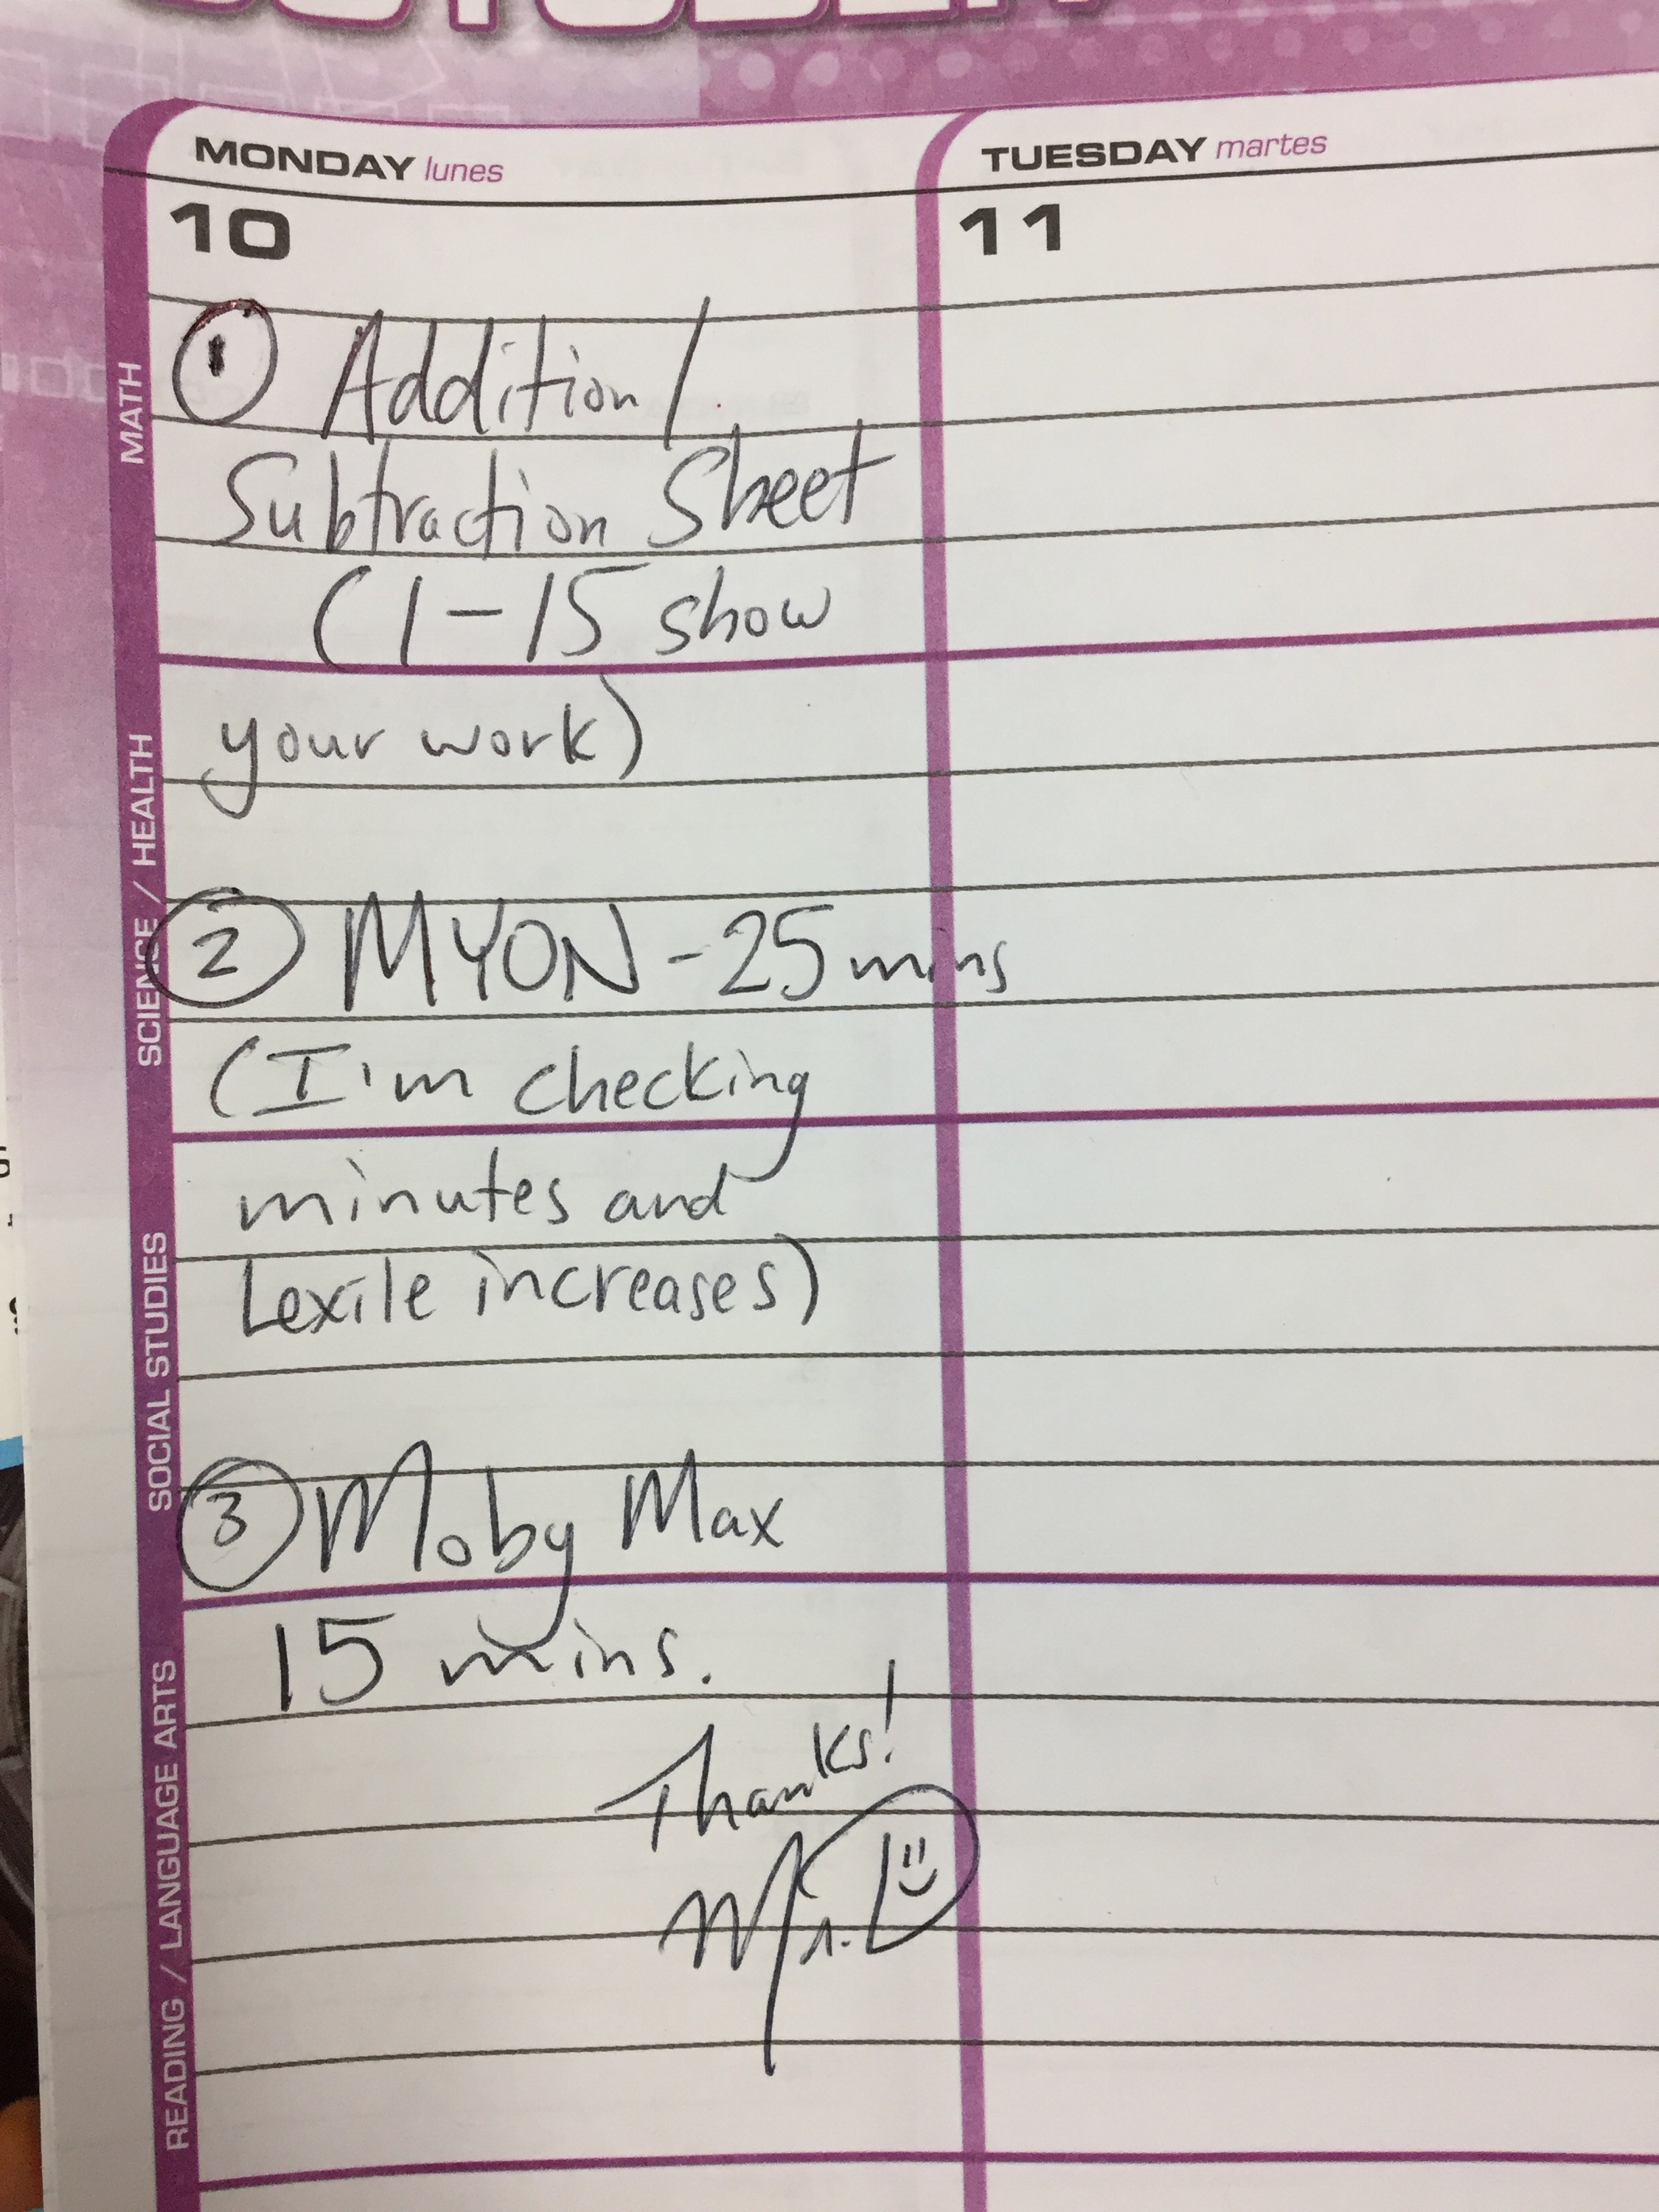 MONDAY lunes
10
① Addition/
Subtraction Sheet
(1-15 show
your work)
② MYON - 25 mins
(I'm checking
minutes and
Lexile increases)
③ Moby Max
15 mins.
Thanks!
Mr. L
TUESDAY martes
11
MATH
SCIENCE / HEALTH
SOCIAL STUDIES
READING / LANGUAGE ARTS